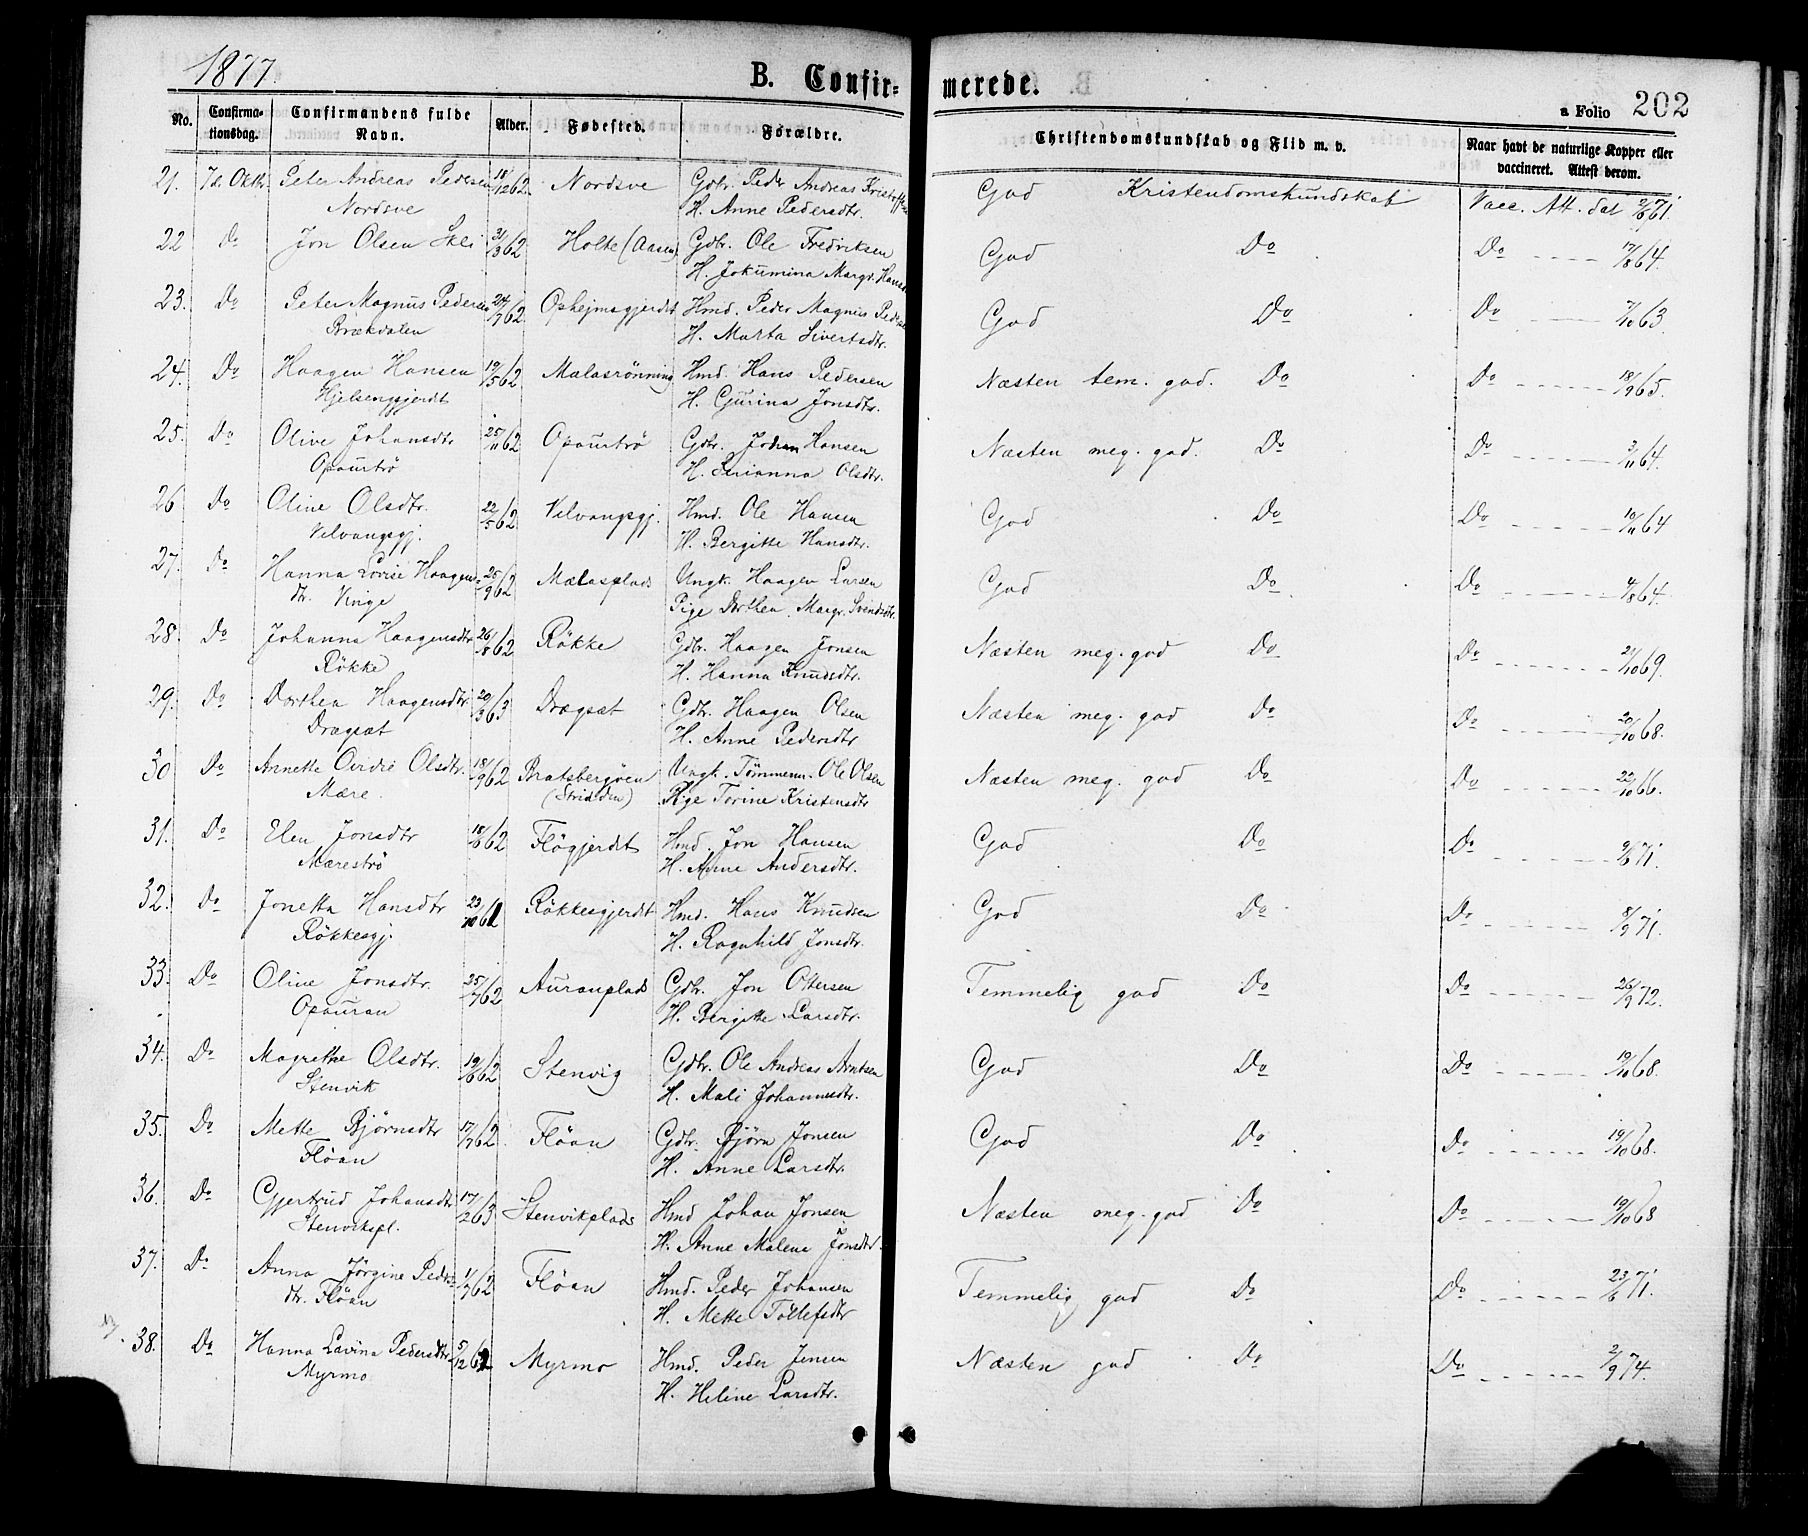 1877.
B. Confirmerede.
a Folio 202
No. Confirmationsdag. Confirmandens fulde Navn. Alder. Fødested. Forældre. Christendomskundskab og Flid m. v. Naar havt de naturlige Kopper eller vaccineret. Attest derom.
21. 7de Oktbr. Peter Andreas Pedersen 18/12 62. Nordsve Gdbr. Peder Andreas Kristoffersen God Kristendomskundskab Vacc. Att. dat 71.
Nordsve H. Anne Pedersdtr.
22 Do Jon Olsen Slei 31/3 62 Holte (Aasen) Gdbr. Ole Fredriksen God Do Do 17/8 64.
H. Jokumina Margr. Hansd
23. Do Peter Magnus Pedersen 24/7 62. Ophejmsgjerdet Hmd. Peder Magnus Peders God Do Do 7/10 63.
Brækdalen H. Marta Sivertsdtr.
24. Do Haagen Hansen 19/5 62 Malasrönning Hmd. Hans Pedersen Næsten tem. god. Do Do 18/9 65.
Hjelsenggjerdt H. Gjurina Jonsdtr.
25. Do Olive Johansdtr 25/11 62 Opaurtrö Gdbr. Johan Hansen Næsten meg. god. Do Do 3/11 64.
Opaurtrö H. Serianna Olsdtr.
26 Do Oline Olsdtr. 22/5 62 Velvangsgj. Hmd. Ole Hansen God Do Do 10/11 64
Velvangsgj. H. Bergitte Hansdtr.
27. Do Hanna Lovise Haagens- 25/9 62 Mælasplads Ungk. Haagen Larsen God Do Do 4/8 64.
dtr. Vinge Pige Dorthea Margr. Svendsdtr.
28. Do Johanna Haagensdtr 26/8 62 Rökke Gdbr. Haagen Jonsen Næsten meg. god Do Do 21/10 69.
Rökke H. Hanna Knudsdtr.
29. Do Dorthea Haagensdtr 20/3 63 Drægset Gdbr. Haagen Olsen Næsten meg. god Do Do 20/10 68.
Drægset H. Anne Pedersdtr
30 Do Annette Ovidie Olsdtr. 18/9 62 Bratsbergöen Ungk. Tömmerm. Ole Olsen Næsten meg. god Do Do 22/10 66.
Mære. (Strinden) Pige Torine Kristensdtr
31. Do Elen Jonsdtr 18/6 62 Flögjerdet Hmd. Jon Hansen God Do Do 71.
Mæreströ H. Anne Andersdtr.
32. Do Jonetta Hansdtr 23/10 61 Rökkesgjerdet Hmd. Hans Knudsen God Do Do 8/9 71.
Rökkesgj. H. Ragnhild Jonsdtr.
33. Do Oline Jonsdtr. 25/7 62 Auranplads Gdbr. Jon Ottersen Temmelig god Do Do 26/9 72.
Opauran H. Bergitte Larsdtr.
34. Do Magrethe Olsdtr. 19/6 62 Stenvig Gdbr. Ole Andreas Arntsen God Do Do 19/10 68.
Stenvik H. Mali Johannesdtr.
35. Do Mette Bjørnsdtr 17/7 62. Flöan Gdbr. Bjørn Jonsen God Do Do 19/10 68.
Flöan H. Anne Larsdtr.
36. Do Gjertrud Johansdtr 17/2 63 Stenvikplads Hmd Johan Jonsen Næsten meg. god Do Do 19/10 68
Stenvikspl. H. Anne Malene Jonsdtr.
37. Do Anna Jörgine Peders- 11/7 62 Flöan Hmd. Peder Johansen Temmelig god Do Do 23/6 71.
dtr. Flöan H. Mette Tollefsdtr
38. Do Hanna Lavina Pedersdtr 5/12 62 Myrmo Hmd. Peder Jensen Næsten god Do Do 2/9 74.
Myrmo H. Heline Larsdtr.